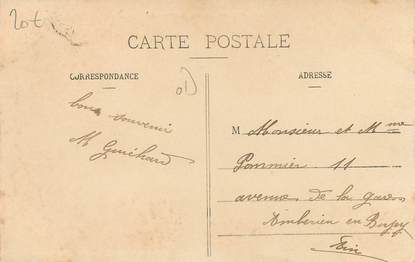 20t
CARTE POSTALE
CORRESPONDANCE
ADRESSE
bon souvenir
M Guichard
M Monsieur et Mme
Pommier 11
avenue de la gare
Amberieu en Bugey
Ain